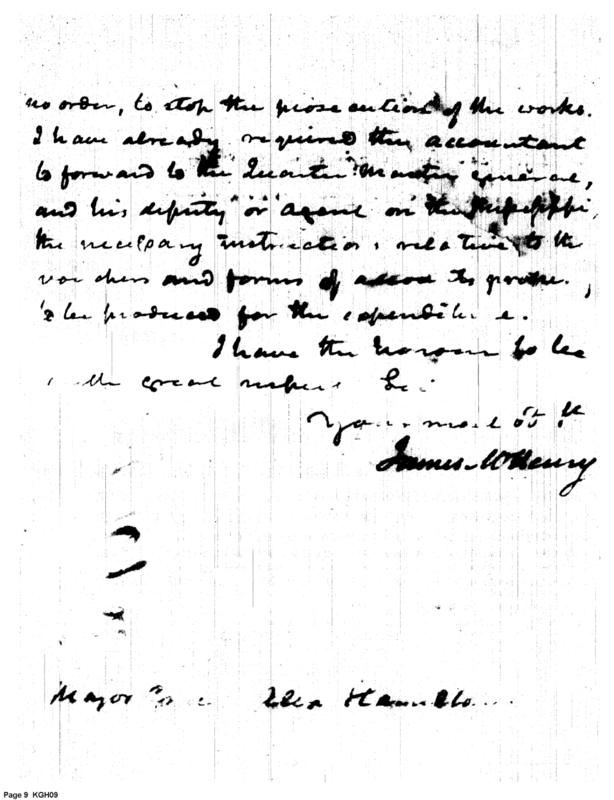 no order, to stop the prosecution of the works.
I have already required the accountant
to forward to the Quarter Master General,
and his deputy or agent on the Mississippi,
the necessary instructions relative to the
vouchers and forms of accounts
to be produced for the expenditure.
I have the honour to be
with great respect
Your most obt
James McHenry
Major Alex Hamilton
Page 9 KGH09